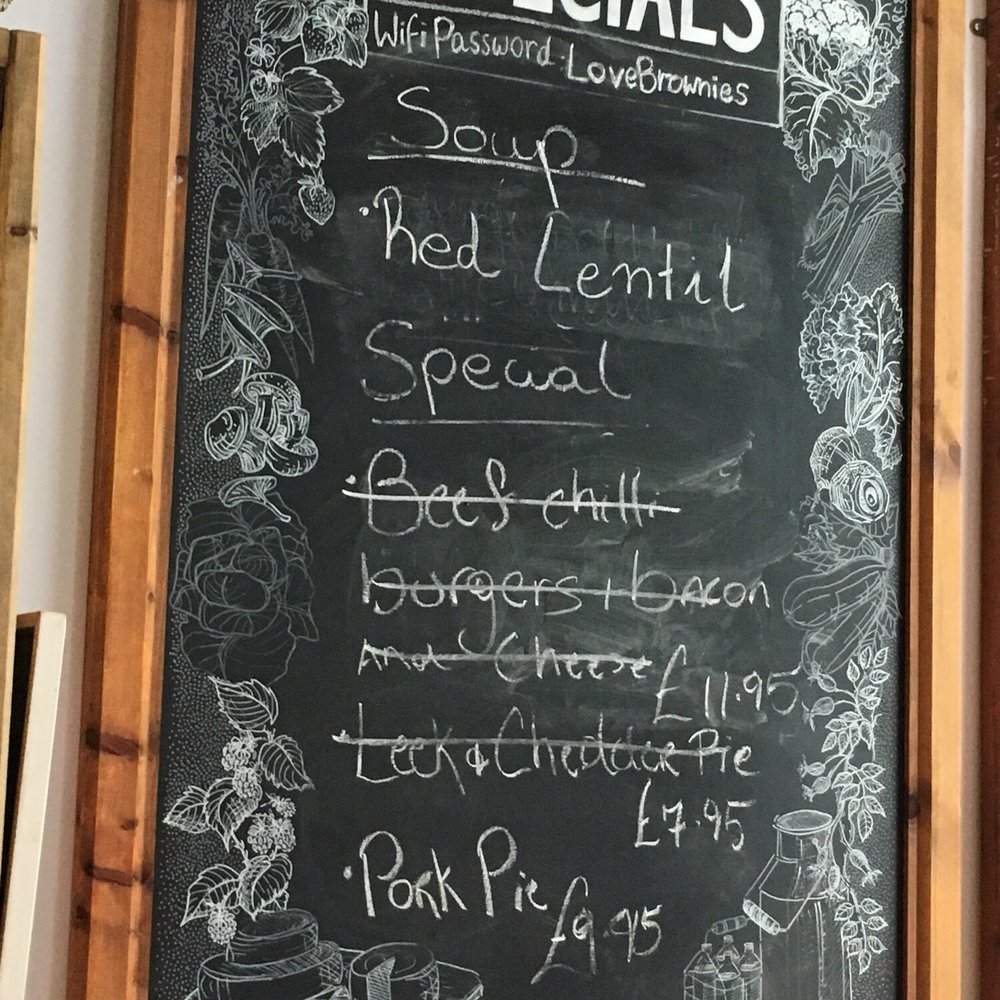 SPECIALS
Wifi Password: LoveBrownies
Soup
· Red Lentil
Special
· Beef chilli
burgers, bacon
And Cheese £11.95
Leek & Cheddar Pie
£7.95
· Pork Pie
£9.95